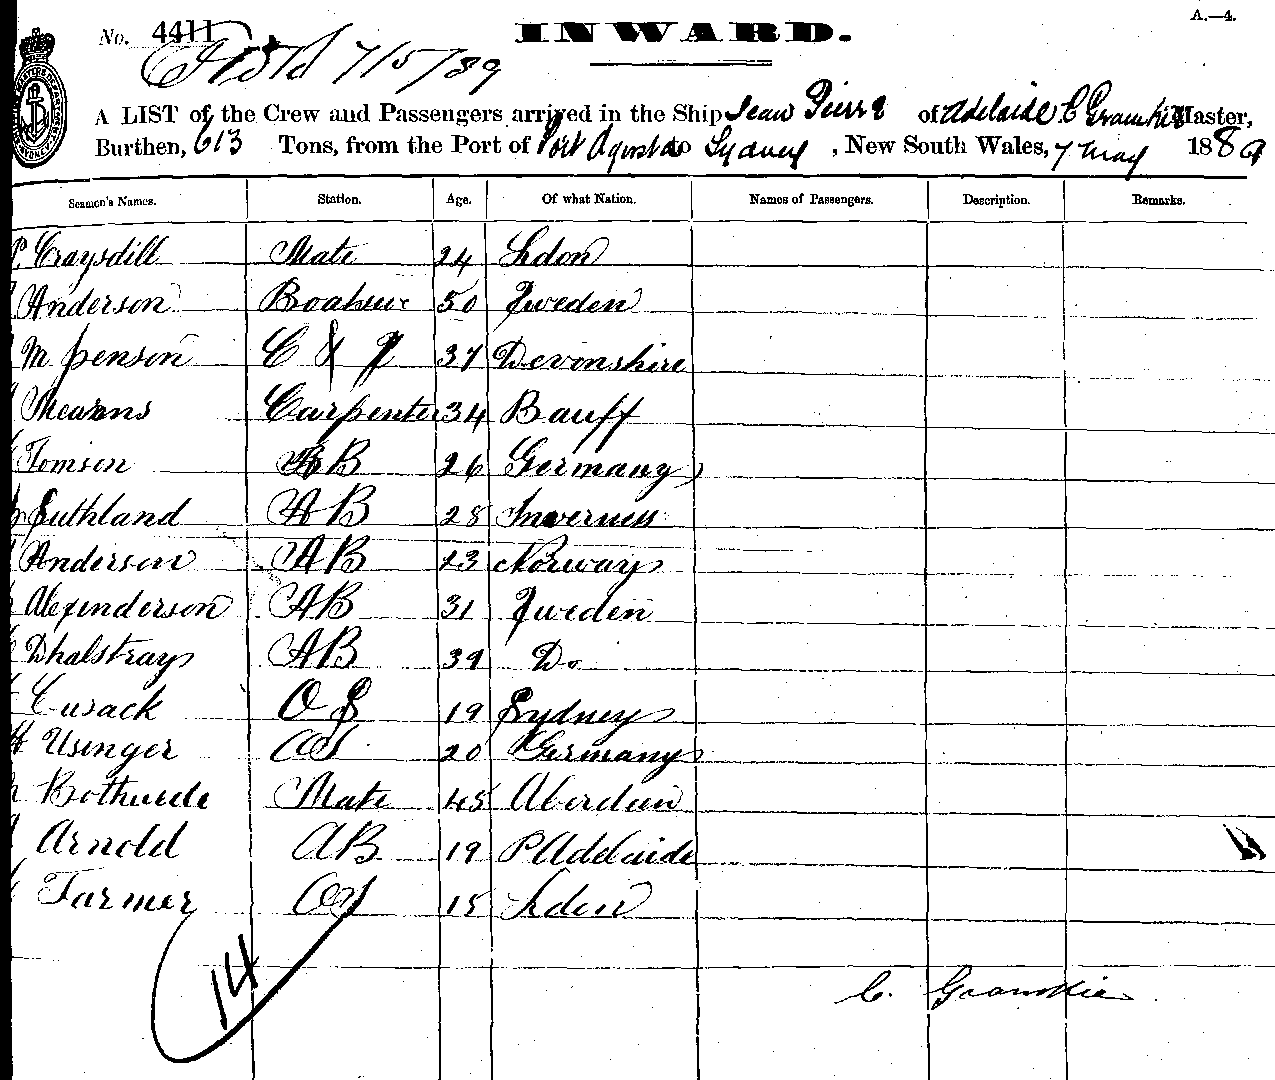 A.—4.
No. 4411
INWARD.
7/5/89
A LIST of the Crew and Passengers arrived in the Ship Jean Pierre of Adelaide C Grankie Master,
Burthen, 613 Tons, from the Port of Port Agusta to Sydney, New South Wales, 7 May 1889
Seamen's Names. Station. Age. Of what Nation. Names of Passengers. Description. Remarks.
P. Graysdill Mate 24 Ldon
Anderson 50 Sweden
M Jenson C & S 37 Devonshire
Mearns Carpenter 34 Banff
Tomson AB 26 Germany
Suthland AB 28 Inverness
Anderson AB 23 Norway
Alexenderson AB 31 Sweden
Dhalstray AB 39 Do
Cusack OS 19 Sydney
Usinger OS 20 Germany
Mate 45 Aberdeen
Arnold AB 19 P Adelaide
Farmer OS 15 Ldon
14
C. Grankie